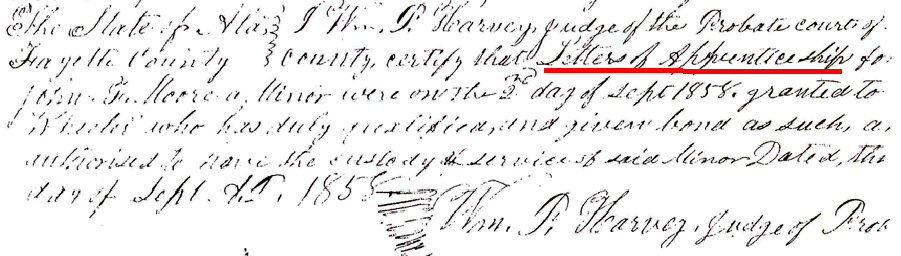 The State of Ala } I Wm. P. Harvey, Judge of the Probate court of
Fayette County } county, certify that Letters of Apprenticeship for
John F. Moore a Minor were on the 2nd day of Sept 1858. granted to
who has duly qualified, and given bond as such, a,
authorised to have the custody & service of said Minor Dated, this
day of Sept. A.D. 1858
Wm. P. Harvey, Judge of Prob